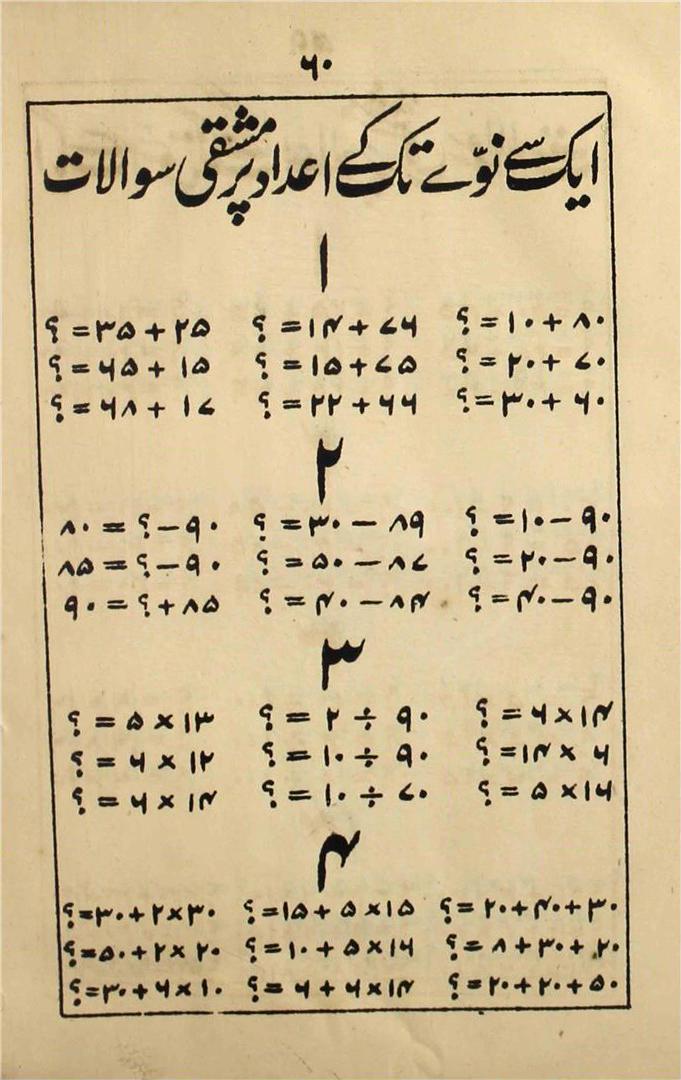 ۶۰
ایک سے نوّے تک کے اعداد پر مشقی سوالات
۱
۸۰ + ۱۰ = ؟ ۷۶ + ۱۴ = ؟ ۲۵ + ۳۵ = ؟
۷۰ + ۲۰ = ؟ ۷۵ + ۱۵ = ؟ ۱۵ + ۶۵ = ؟
۶۰ + ۳۰ = ؟ ۶۶ + ۲۲ = ؟ ۱۷ + ۶۸ = ؟
۲
۹۰ − ۱۰ = ؟ ۸۹ − ۳۰ = ؟ ۹۰ − ؟ = ۸۰
۹۰ − ۲۰ = ؟ ۸۷ − ۵۰ = ؟ ۹۰ − ؟ = ۸۵
۹۰ − ۴۰ = ؟ ۸۴ − ۴۰ = ؟ ۸۵ + ؟ = ۹۰
۳
۱۴ × ۶ = ؟ ۹۰ ÷ ۲ = ؟ ۱۳ × ۵ = ؟
۶ × ۱۴ = ؟ ۹۰ ÷ ۱۰ = ؟ ۱۲ × ۶ = ؟
۱۶ × ۵ = ؟ ۷۰ ÷ ۱۰ = ؟ ۱۴ × ۶ = ؟
۴
۳۰ + ۴۰ + ۲۰ = ؟ ۱۵ × ۵ + ۱۵ = ؟ ۳۰ × ۲ + ۳۰ = ؟
۲۰ + ۳۰ + ۸ = ؟ ۱۶ × ۵ + ۱۰ = ؟ ۲۰ × ۲ + ۵۰ = ؟
۵۰ + ۲۰ + ۲۰ = ؟ ۱۴ × ۶ + ۶ = ؟ ۱۰ × ۶ + ۳۰ = ؟